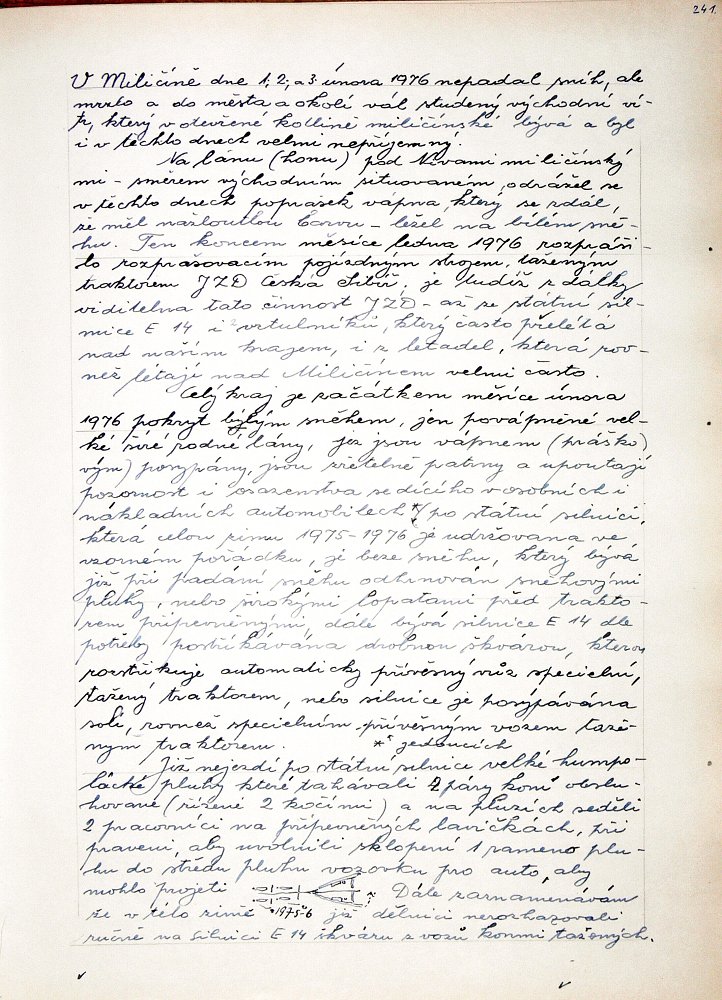 241.
V Miličíně dne 1; 2; a 3. února 1976 nepadal sníh, ale
mrzlo a do města a okolí vál studený východní ví-
tr, který v otevřené kotlině miličínské bývá a byl
i v těchto dnech velmi nepříjemný.
Na lánu (honu) pod Nivami miličínský
mi - směrem východním situovaném, odrážel se
v těchto dnech poprašek vápna, který se zdál,
že měl nažloutlou barvu - ležel na bílém sně-
hu. Ten koncem měsíce ledna 1976 rozpráši-
lo rozprašovacím pojízdným strojem, taženým
traktorem JZD Česká Sibiř, je tudíž z dálky
viditelna tato činnost JZD - až ze státní sil-
nice E 14 i z vrtulníků, který často přelétá
nad naším krajem, i z letadel, která rov-
něž létají nad Miličínem velmi často.
Celý kraj je začátkem měsíce února
1976 pokryt bílým sněhem, jen povápněné vel-
ké širé rodné lány, jež jsou vápnem (práško)
vým) posypány, jsou zřetelně patrny a upoutají
pozornost i osazenstva sedícího v osobních i
nákladních automobilech *) po státní silnici,
která celou zimu 1975-1976 je udržována ve
vzorném pořádku, je beze sněhu, který bývá
již při padání sněhu odhrnován sněhovými
pluhy, nebo širokými lopatami před trakto-
rem připevněnými, dále bývá silnice E 14 dle
potřeby postřikávána drobnou škvárou, kterou
rozstřikuje automaticky přívěsný vůz specielní,
tažený traktorem, nebo silnice je posypávána
solí, rovněž specielním přívěsným vozem taže-
ným traktorem. *) jedoucích
Již nejezdí po státní silnice velké humpo-
lácké pluhy které tahávali 2 páry koní obslu-
hované (řízené 2 kočími) a na pluzích seděli
2 pracovníci na připevněných lavičkách, při
praveni, aby uvolnili sklopení 1 rameno plu-
hu do středu pluhu vozovku pro auto, aby
mohlo projeti Dále zaznamenávám
že v této zimě 1975-6 již dělníci nerozhazovali
ručně na silnici E 14 škváru z vozů koňmi tažených.